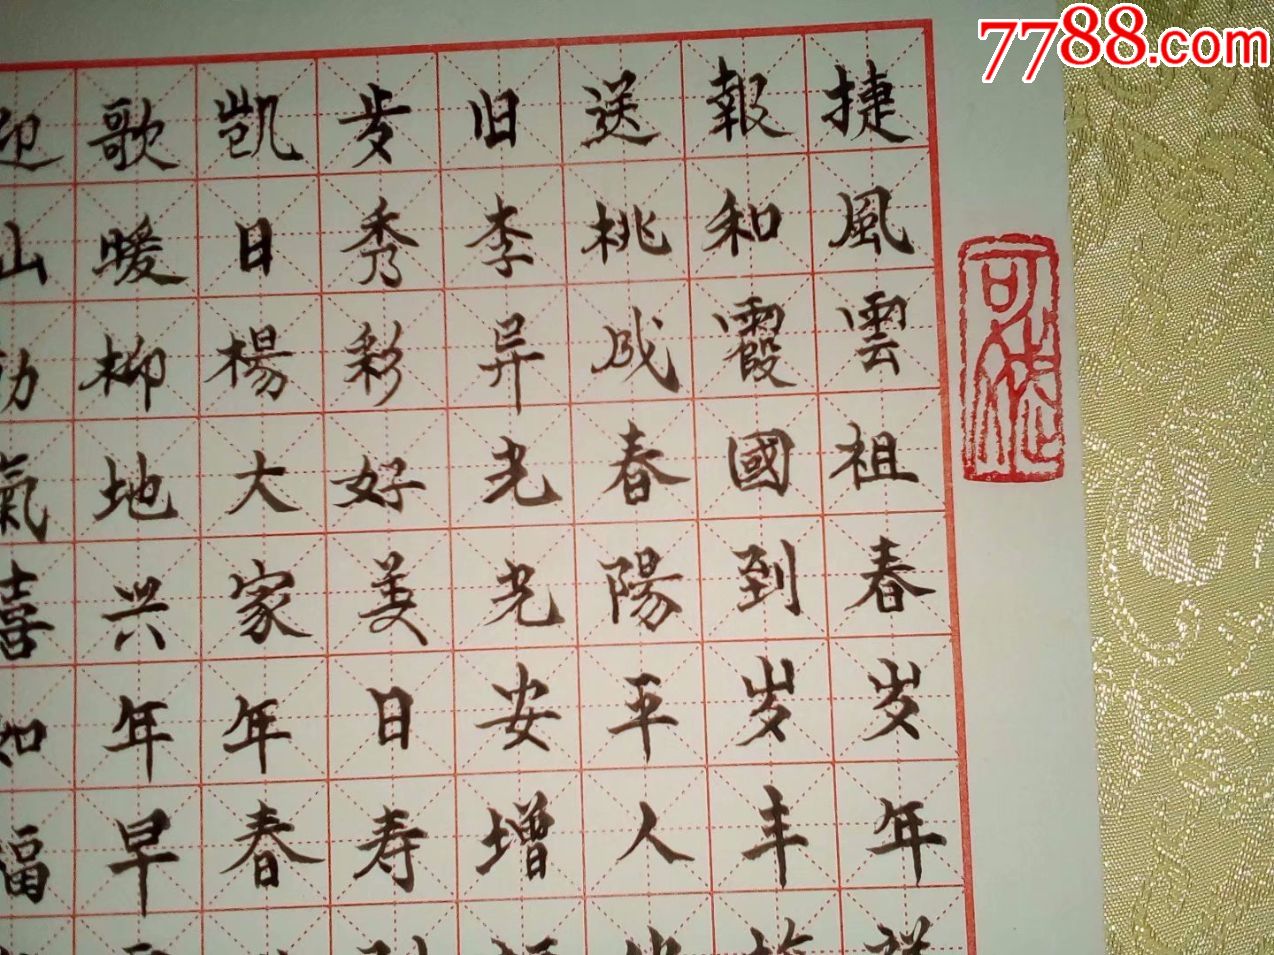 捷報送旧岁凱歌迎
風和桃李秀日暖山
雲霞成异彩楊柳
祖國春光好大地氣
春到陽光美家兴喜
岁岁平安日年年如
年丰人增寿春早福
7788.com